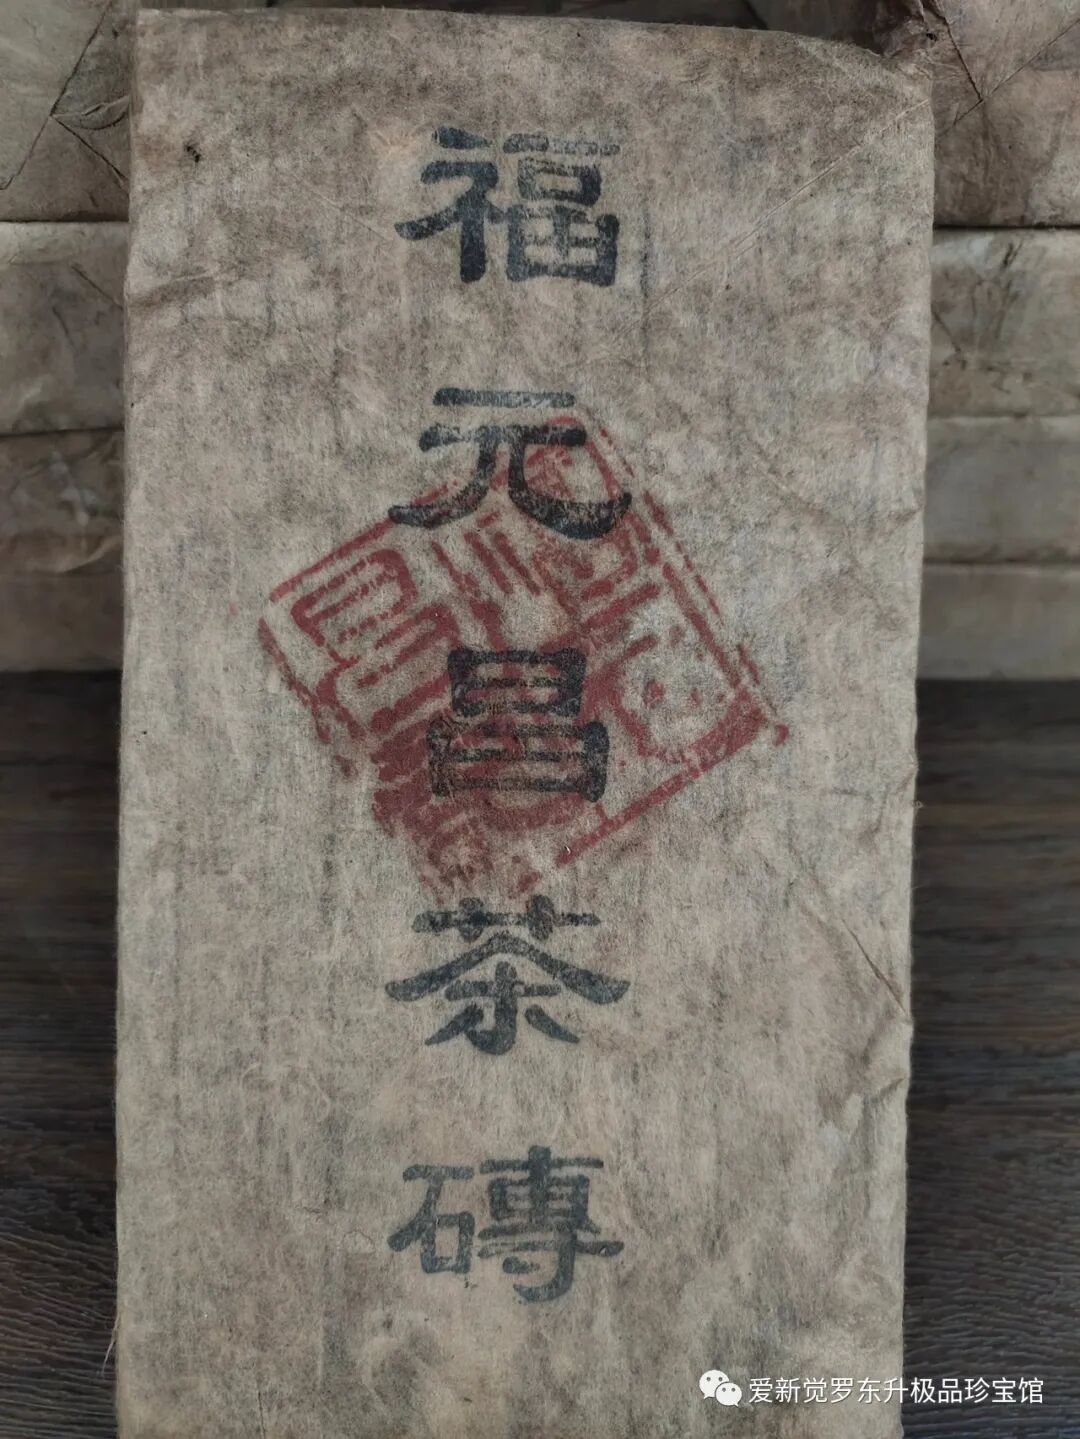 福元昌茶磚
爱新觉罗东升极品珍宝馆